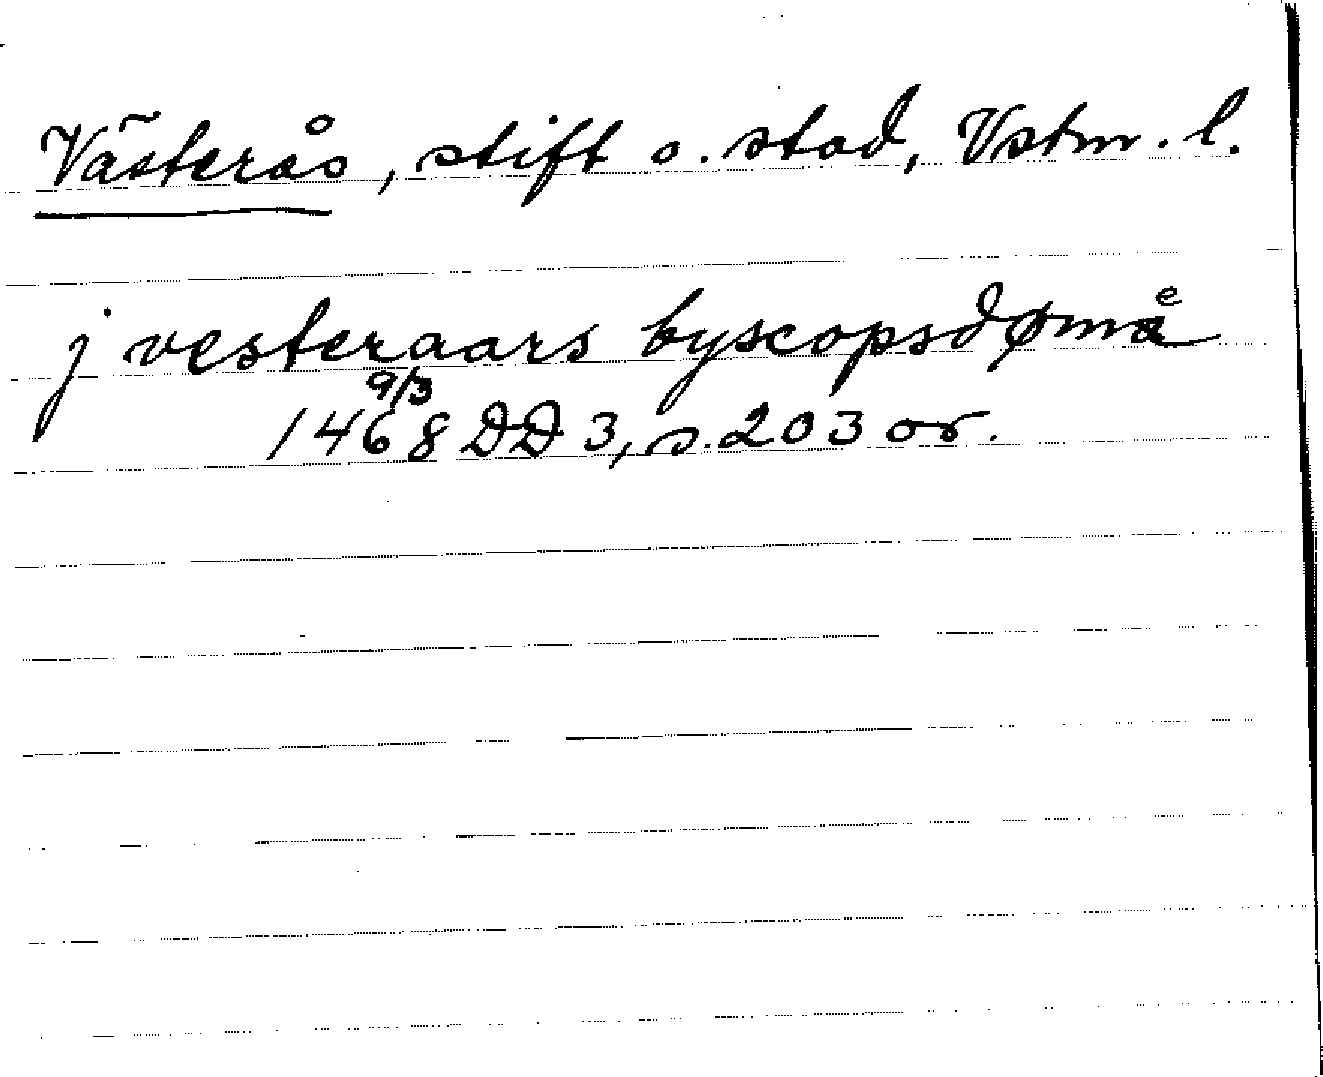 Västerås, stift o. stad, Vstm. l.
j vesteraars byscopsdømæ
9/3
1468 DD 3, s. 203 or.